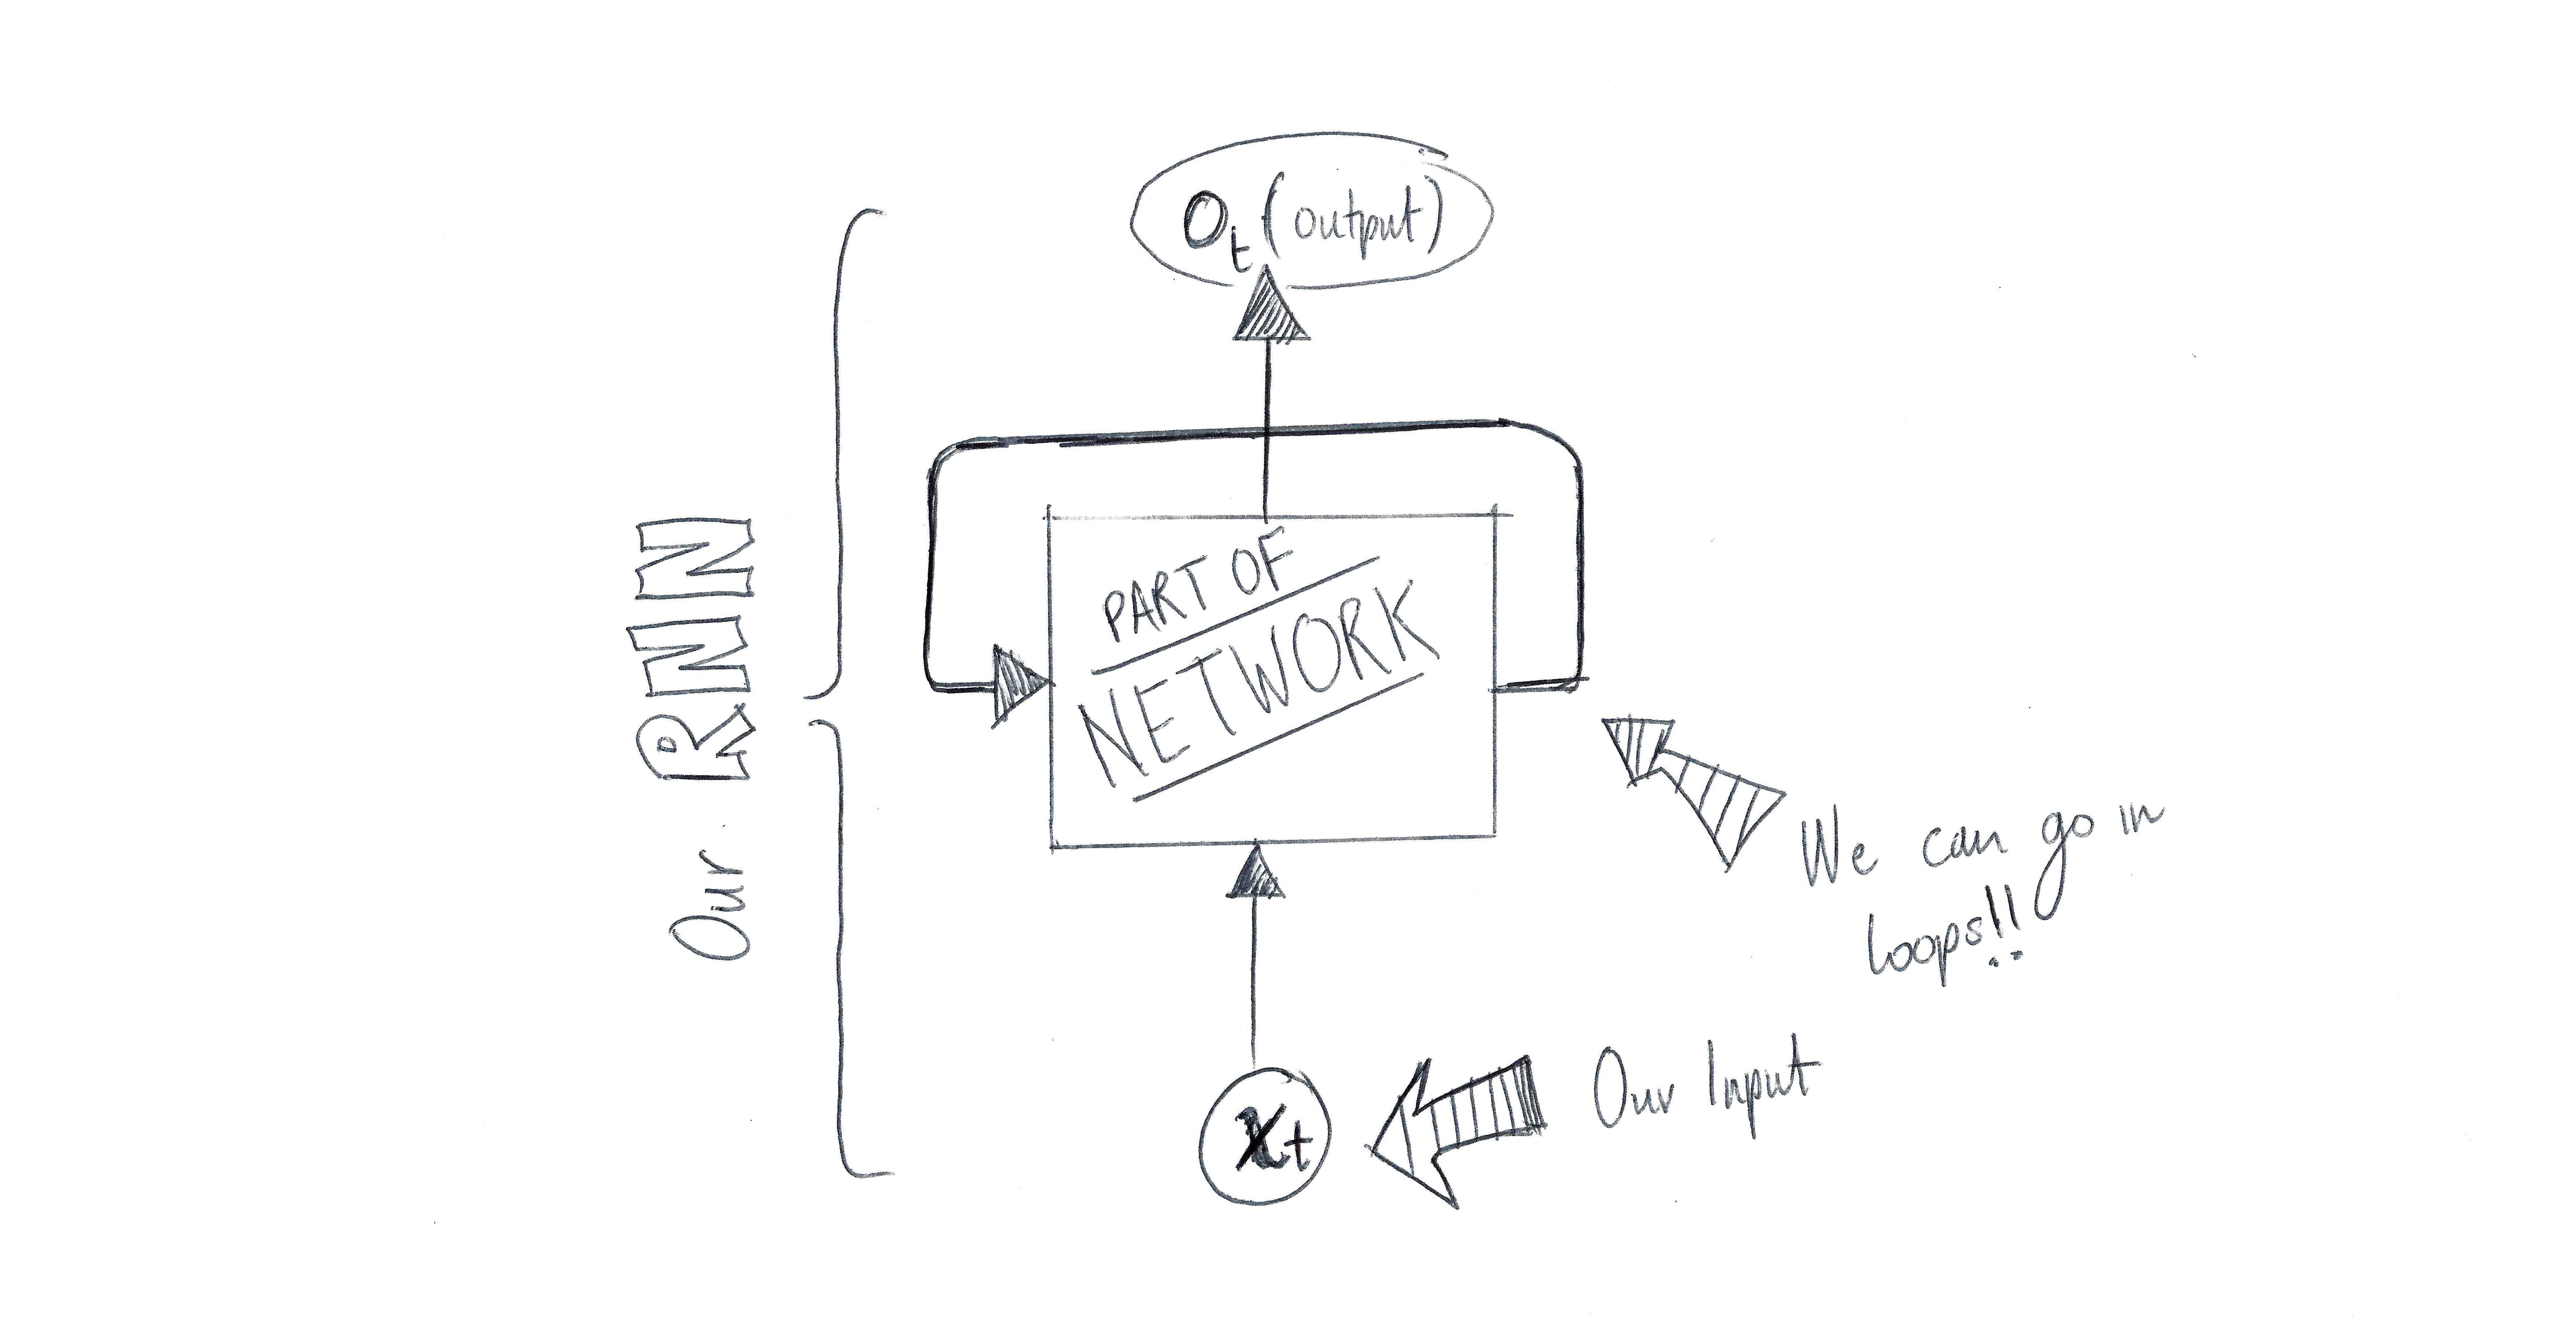 Oₜ (output)
Our RNN
PART OF
NETWORK
We can go in
loops!!
Xₜ
Our Input